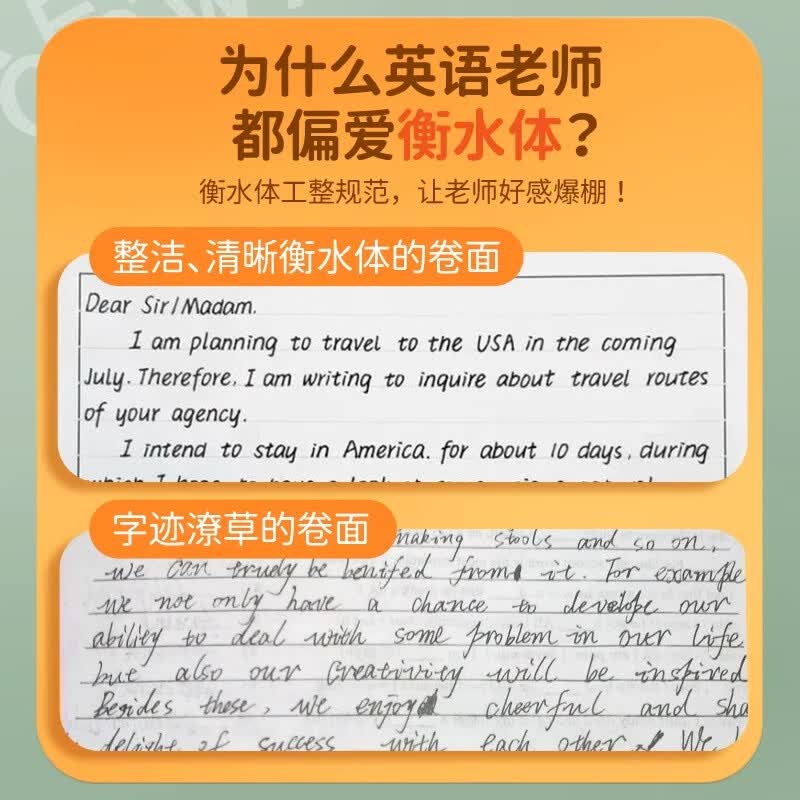 为什么英语老师
都偏爱衡水体?
衡水体工整规范，让老师好感爆棚！
整洁、清晰衡水体的卷面
Dear Sir/Madam.
I am planning to travel to the USA in the coming
July. Therefore, I am writing to inquire about travel routes
of your agency.
I intend to stay in America. for about 10 days, during
字迹潦草的卷面
making stools and so on,
we can truely be benifed from it. For example
we not only have a chance to develope our
ability to deal with some problem in our life
but also our creativity will be inspired
Besides these, we enjoy cheerful and sha
delight of success with each other. We